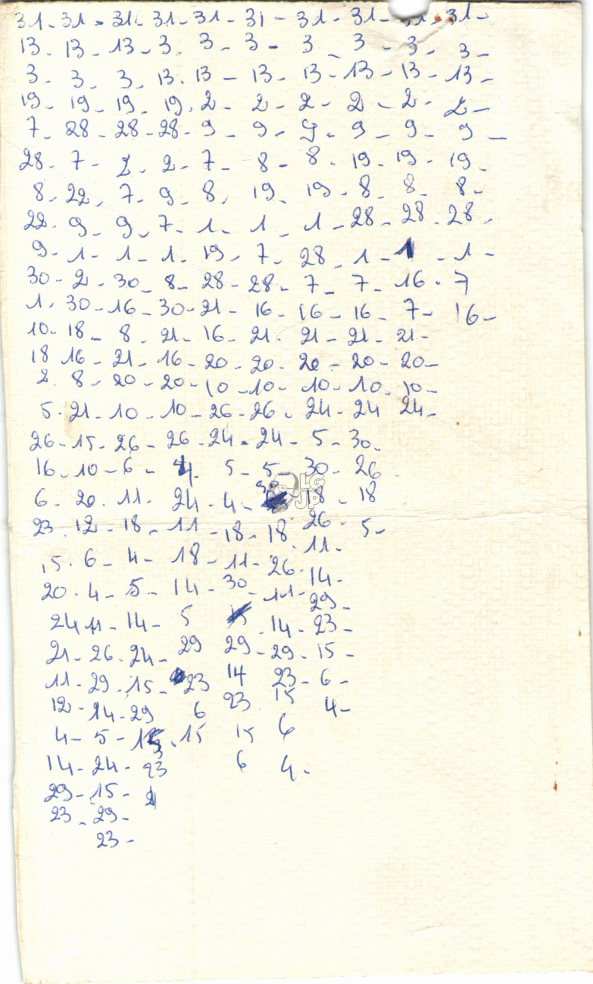 31 - 31 - 31 - 31 - 31 - 31 - 31 - 31 - 31 - 31 -
13 - 13 - 13 - 3 - 3 - 3 - 3 - 3 - 3 - 3 -
3 - 3 - 3 - 13 - 13 - 13 - 13 - 13 - 13 - 13 -
19 - 19 - 19 - 19 - 2 - 2 - 2 - 2 - 2 - 2 -
7 - 28 - 28 - 28 - 9 - 9 - 9 - 9 - 9 - 9 -
28 - 7 - 2 - 2 - 7 - 8 - 8 - 19 - 19 - 19 -
8 - 22 - 7 - 9 - 8 - 19 - 19 - 8 - 8 - 8 -
22 - 9 - 9 - 7 - 1 - 1 - 1 - 28 - 28 - 28 -
9 - 1 - 1 - 1 - 19 - 7 - 28 - 1 - 1 - 1 -
30 - 2 - 30 - 8 - 28 - 28 - 7 - 7 - 16 - 7
1 - 30 - 16 - 30 - 21 - 16 - 16 - 16 - 7 - 16 -
10 - 18 - 8 - 21 - 16 - 21 - 21 - 21 - 21 -
18 16 - 21 - 16 - 20 - 20 - 20 - 20 - 20 -
2 - 8 - 20 - 20 - 10 - 10 - 10 - 10 - 10 -
5 - 21 - 10 - 10 - 26 - 26 - 24 - 24 24 -
26 - 15 - 26 - 26 - 24 - 24 - 5 - 30 -
16 - 10 - 6 - 4 - 5 - 5 30 - 26
6 - 20 - 11 - 24 - 4 - 30 18 - 18
23 - 12 - 18 - 11 - 18 - 18 - 26 - 5 -
15 - 6 - 4 - 18 - 11 - 26 - 11 -
20 - 4 - 5 - 14 - 30 - 11 - 14 -
24 11 - 14 - 5 14 - 29 -
21 - 26 - 24 - 29 29 - 29 - 23 -
11 - 29 - 15 - 23 14 23 - 15 -
12 - 14 - 29 6 23 15 6 -
4 - 5 - 15 - 15 15 6 4 -
14 - 24 - 23 6 4 -
29 - 15 -
23 - 29 -
23 -